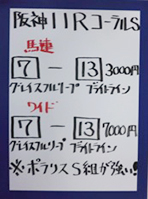 阪神11RコーラルS
馬連
7 - 13 3000円
グレイスフルリープ ブライトライン
ワイド
7 - 13 7000円
グレイスフルリープ ブライトライン
※ポラリスS組が強い!